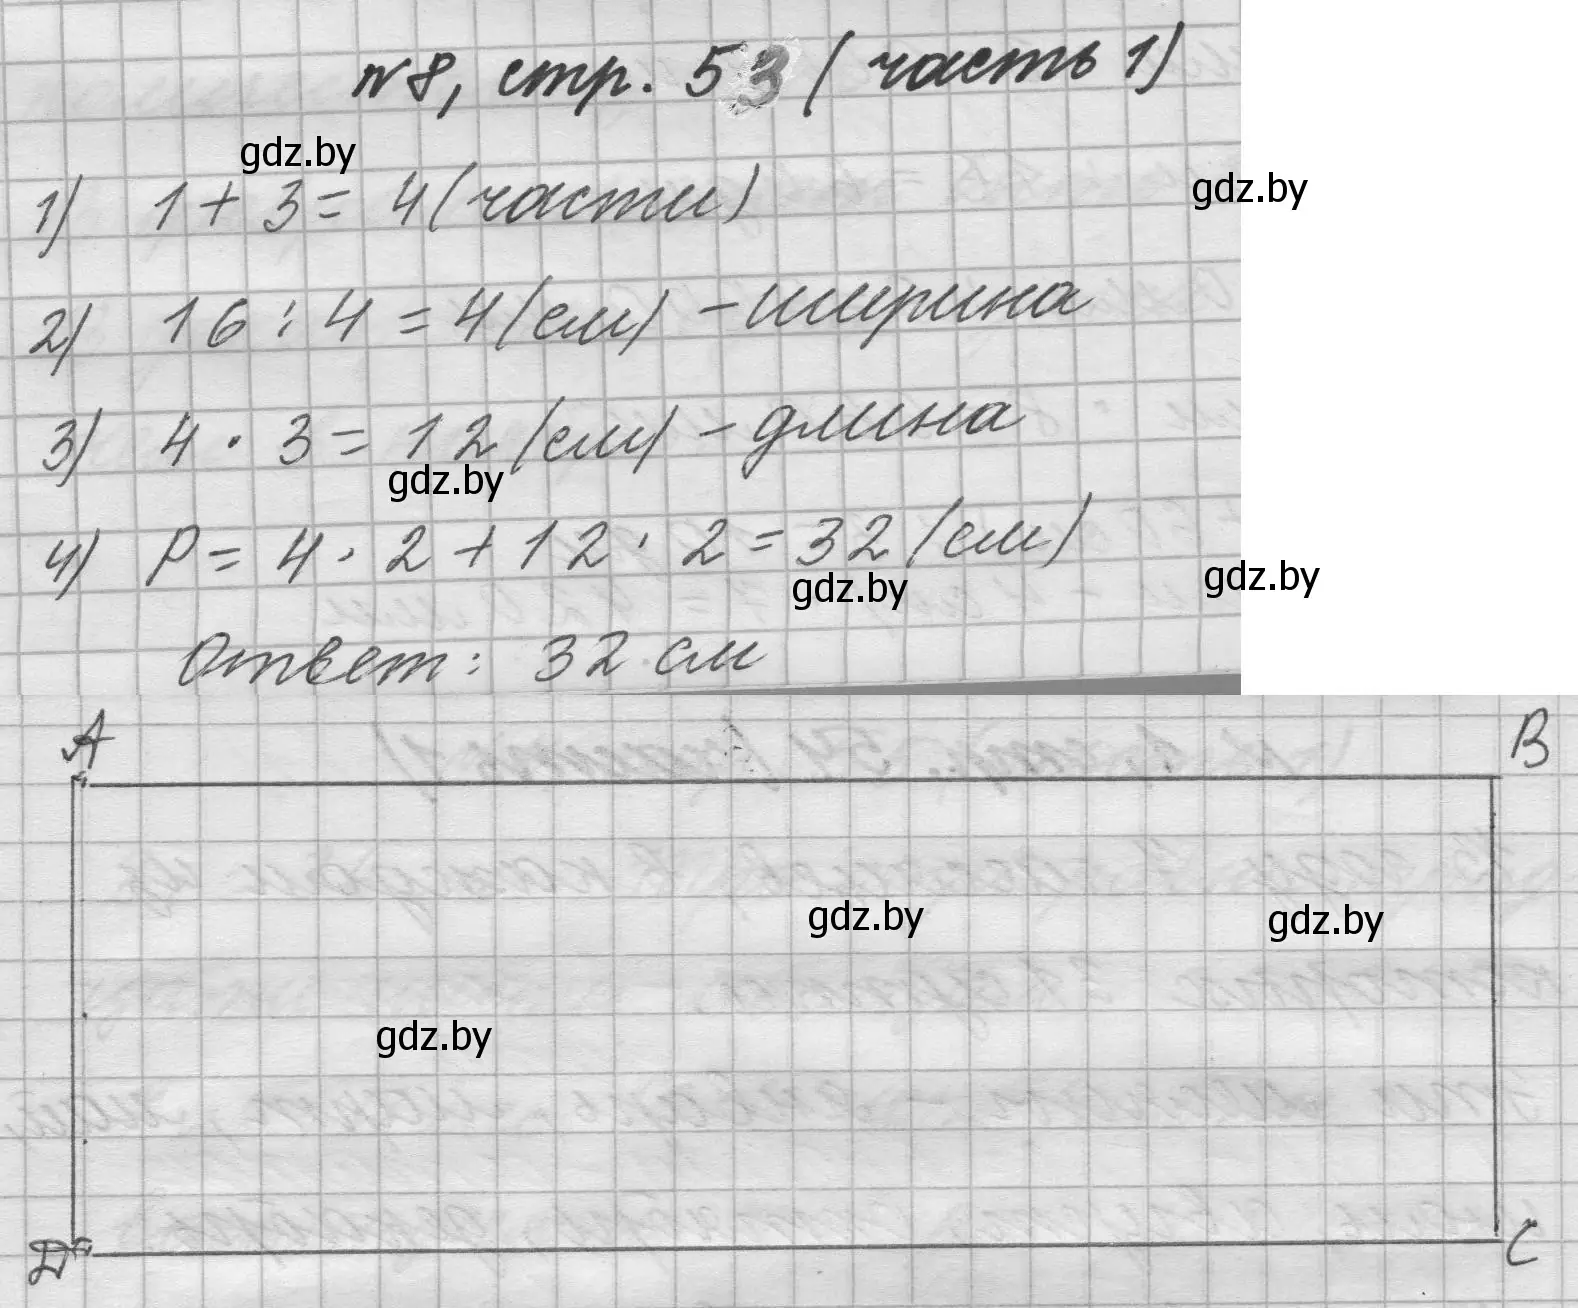 №8, стр. 53 (часть 1)
gdz.by
1) 1 + 3 = 4 (части)
gdz.by
2) 16 : 4 = 4 (см) – ширина
3) 4 · 3 = 12 (см) – длина
gdz.by
4) P = 4 · 2 + 12 · 2 = 32 (см)
gdz.by
gdz.by
Ответ: 32 см
A B
gdz.by
gdz.by
gdz.by
D C